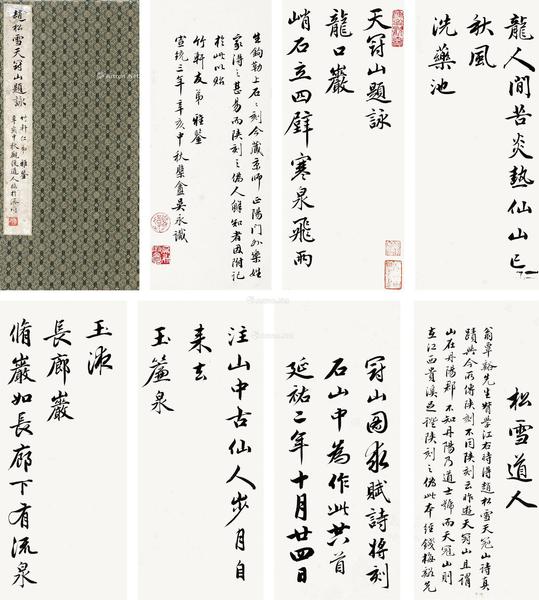 趙松雪天冠山題詠
竹軒仁弟雅鑒
辛亥中秋
生鉤勒上石石刻今藏京師正陽門外樂姓
家得之甚易而陝刻之偽人鮮知者因附記
於此以貽
竹軒友弟雅鑒
宣統三年辛亥中秋槃盦吳永識
天冠山題詠
龍口巖
峭石立四壁寒泉飛兩
龍人間苦炎熱仙山已
秋風
洗藥池
玉液
長廊巖
脩巖如長廊下有流泉
注山中古仙人步月自
來去
玉簾泉
冠山圖求賦詩將刻
石山中為作此廿八首
延祐二年十月廿四日
松雪道人
翁覃谿先生督學江右時得趙松雪天冠山詩真
蹟與今所傳陝刻不同陝刻云昨遊天冠山且謂
山在丹陽郡不知丹陽乃道士號而天冠山則
在江西貴溪足證陝刻之偽此本經錢梅谿先